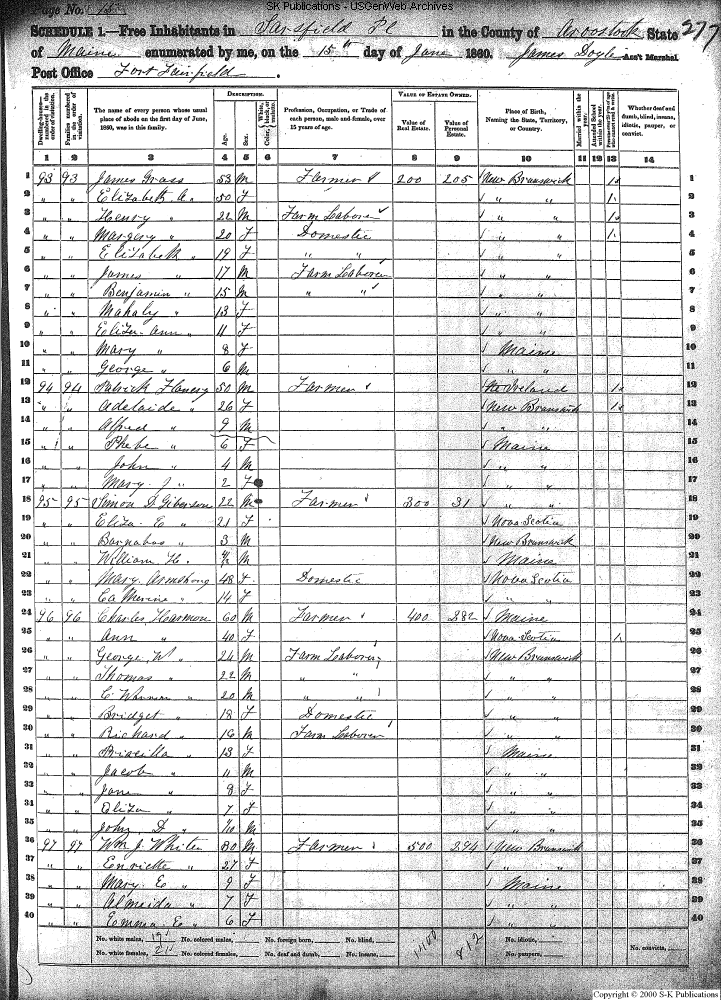 SK Publications - USGenWeb Archives
Page No. 15
SCHEDULE 1.—Free Inhabitants in Sarsfield Pl in the County of Aroostook State 277
of Maine enumerated by me, on the 15th day of June 1860. James Doyle Ass't Marshal.
Post Office Fort Fairfield.
Dwelling-houses— numbered in the order of visitation.
Families numbered in the order of visitation.
The name of every person whose usual place of abode on the first day of June, 1860, was in this family.
DESCRIPTION.
Age.
Sex.
Color, White, black, or mulatto.
Profession, Occupation, or Trade of each person, male and female, over 15 years of age.
VALUE OF ESTATE OWNED.
Value of Real Estate.
Value of Personal Estate.
Place of Birth, Naming the State, Territory, or Country.
Married within the year.
Attended School within the year.
Whether deaf and dumb, blind, insane, idiotic, pauper, or convict.
1 2 3 4 5 6 7 8 9 10 11 12 13 14
1 93 93 James Grass 53 M Farmer 200 205 New Brunswick 1
2 " " Elizabeth A. 50 F " " 2
3 " " Henry " 22 M Farm Laborer " " 3
4 " " Margery " 20 F Domestic " " 4
5 " " Elizabeth " 19 F " " " " 5
6 " " James " 17 M Farm Laborer " " 6
7 " " Benjamin " 15 M " " " " 7
8 " " Mahaly " 13 F " " 8
9 " " Eliza Ann " 11 F " " 9
10 " " Mary " 8 F Maine 10
11 " " George " 6 M " " 11
12 94 94 Patrick 50 M Farmer Ireland 12
13 " " Adelaide " 26 F New Brunswick 13
14 " " Alfred " 9 M 14
15 " " Phebe " 6 F Maine 15
16 " " John " 4 M " " 16
17 " " Mary J " 2 F " " 17
18 95 95 Simon D. Giberson 22 M Farmer 300 31 " " 18
19 " " Eliza E " 21 F Nova Scotia 19
20 " " Barnabas " 3 M New Brunswick 20
21 " " William H. " M Maine 21
22 " " Mary Armstrong 48 F Domestic Nova Scotia 22
23 " " Catherine " 14 F " " 23
24 96 96 Charles Harmon 60 M Farmer 400 282 Maine 24
25 " " Ann " 40 F Nova Scotia 25
26 " " George W " 24 M Farm Laborer New Brunswick 26
27 " " Thomas " 22 M " " " " 27
28 " " 20 M " " " " 28
29 " " Bridget " 18 F Domestic " " 29
30 " " Richard " 16 M Farm Laborer " " 30
31 " " Priscilla " 13 F Maine 31
32 " " Jacob " 11 M " " 32
33 " " Jane " 8 F " " 33
34 " " Eliza " 7 F " " 34
35 " " John D " M " " 35
36 97 97 Wm J. White 30 M Farmer 500 294 New Brunswick 36
37 " " Enriette " 27 F " " 37
38 " " Mary E " 9 F Maine 38
39 " " Almeida " 7 F " " 39
40 " " Emma E " 6 F " " 40
No. white males, 19 No. colored males, No. foreign born, No. blind, 1400 812 No. idiotic,
No. white females, 21 No. colored females, No. deaf and dumb, No. insane, No. paupers, No. convicts,
Copyright © 2000 S-K Publications